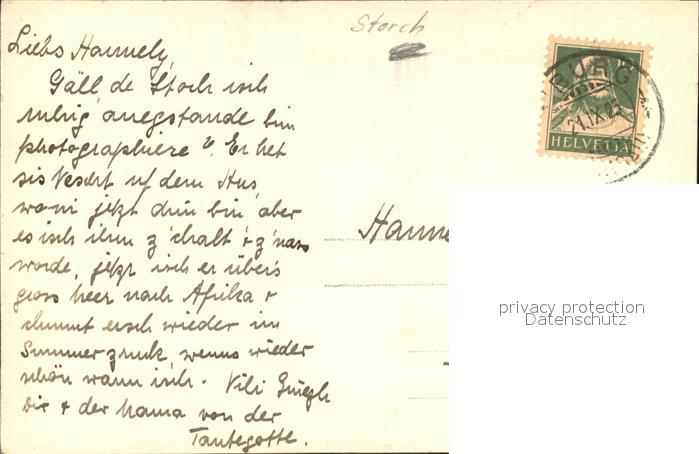 Storch
Liebs Hannely,
Gäll de Storch isch
ruhig anegstande bim
photographiere? Er het
sis Nescht uf dem Hus
woni jetzt drin bin, aber
es isch ihm z'chalt + z'nass
worde, jetzt isch er übers
gross Meer nach Afrika +
chunnt ersch wieder im
Summer zruk, wenns wieder
schön warm isch. Vili Grüezli
Dir + der Mama von der
Tantegotte.
BURG
21.IX.25
HELVETIA
Hanne
privacy protection
Datenschutz